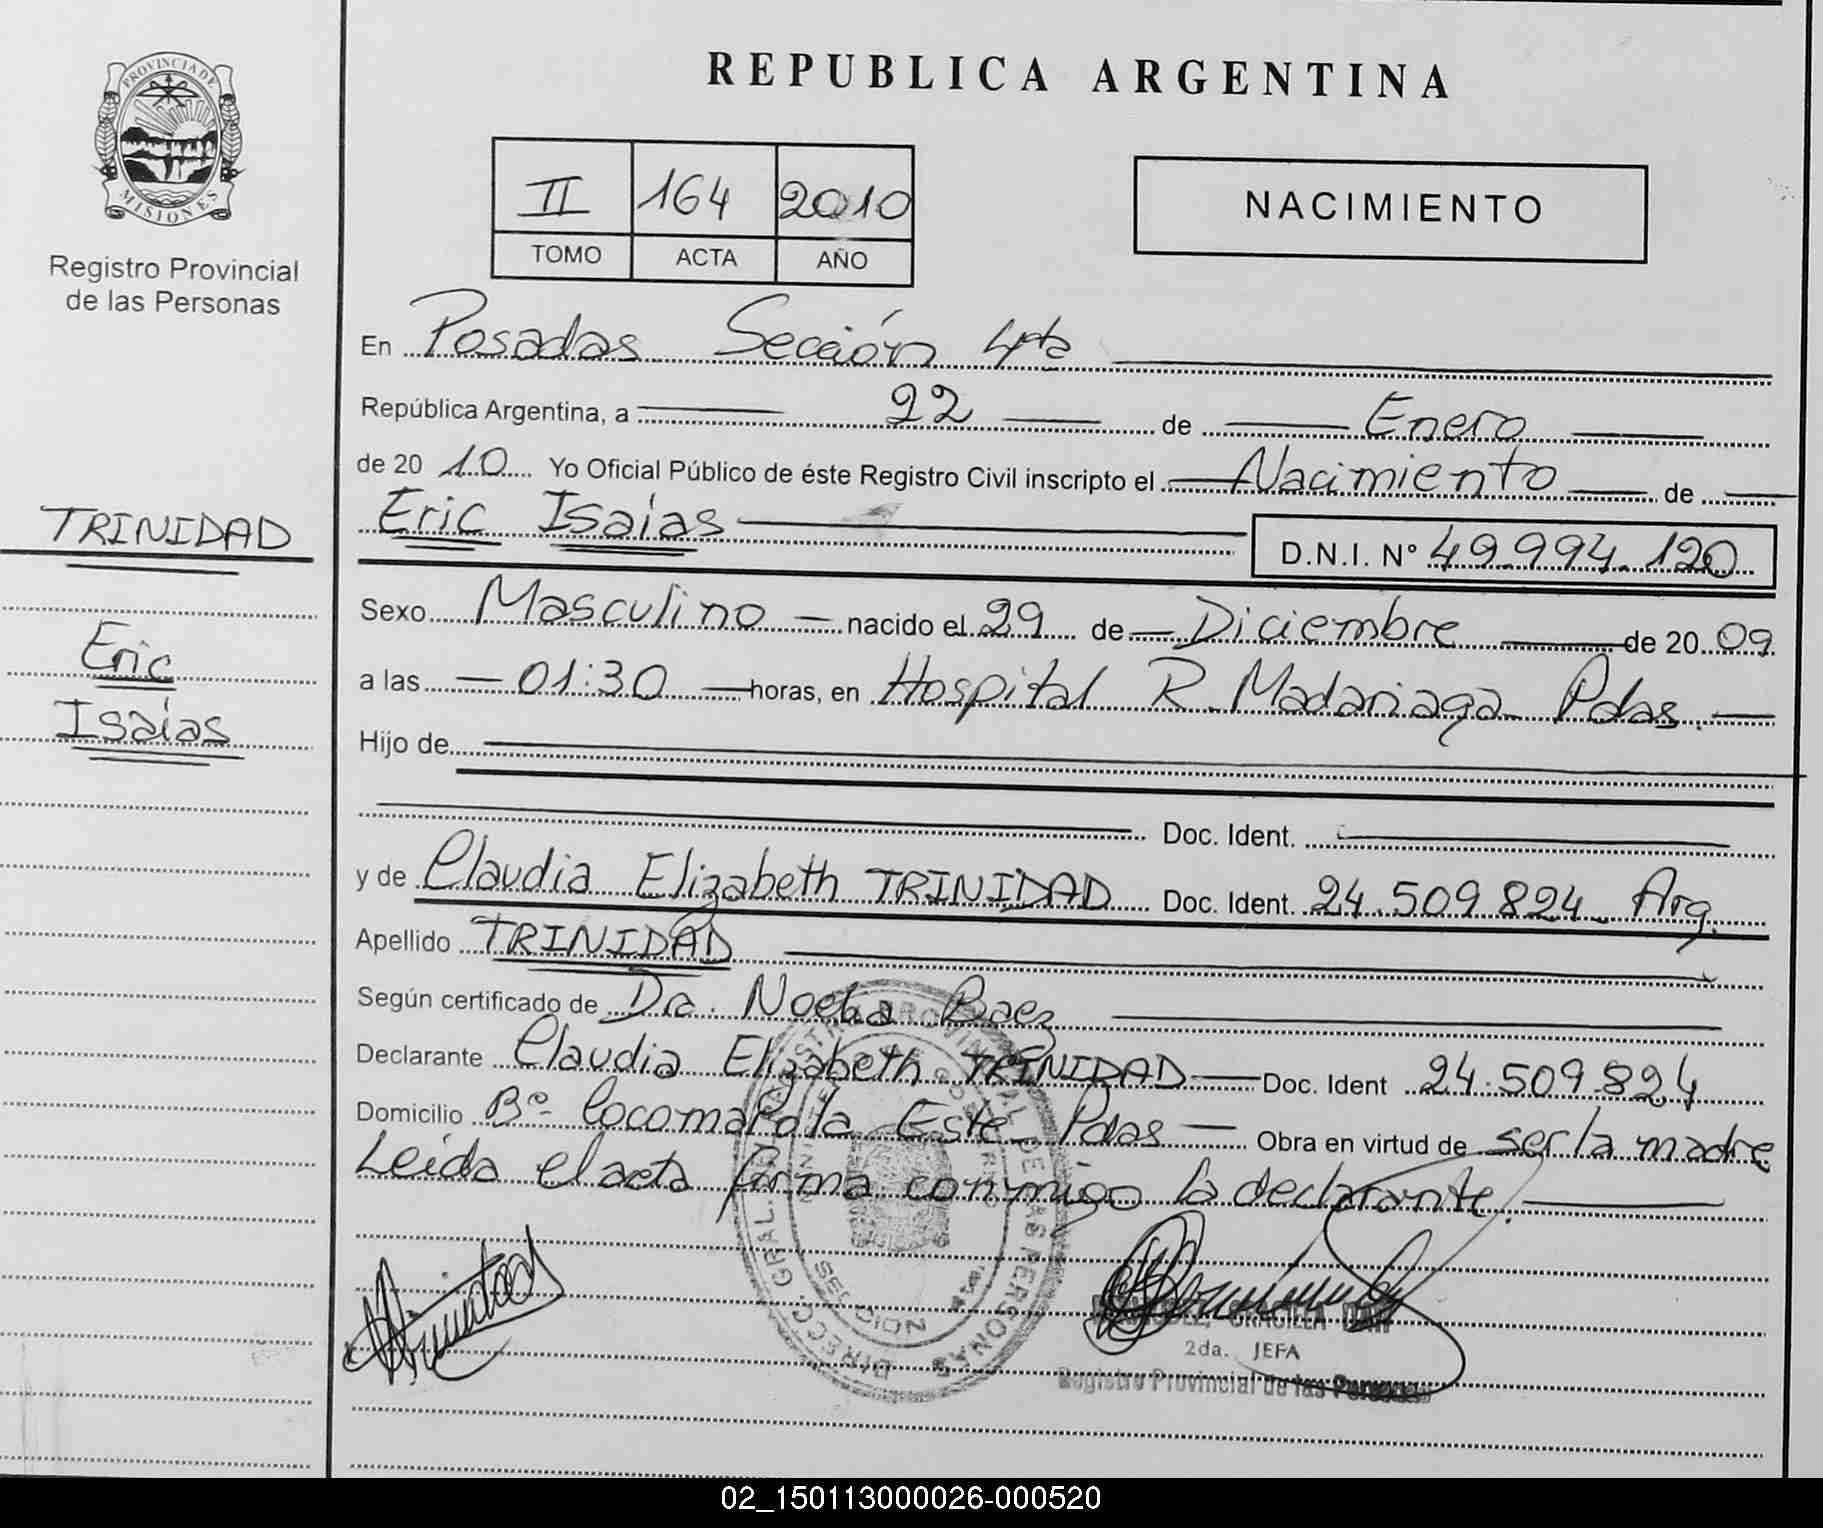 PROVINCIA DE
MISIONES
Registro Provincial
de las Personas
TRINIDAD
Eric
Isaías
REPUBLICA ARGENTINA
II 164 2010
TOMO ACTA AÑO
NACIMIENTO
En Posadas Sección 4ta
República Argentina, a 22 de Enero
de 20 10 Yo Oficial Público de éste Registro Civil inscripto el Nacimiento de
Eric Isaías
D.N.I. N° 49.994.120
Sexo Masculino nacido el 29 de Diciembre de 20 09
a las 01:30 horas, en Hospital R. Madariaga Pdas.
Hijo de
Doc. Ident.
y de Claudia Elizabeth TRINIDAD Doc. Ident. 24.509.824 Arg.
Apellido TRINIDAD
Según certificado de Dra. Noelia Baez
Declarante Claudia Elizabeth TRINIDAD Doc. Ident 24.509.824
Domicilio B° Cocomarola Este Pdas Obra en virtud de ser la madre
Leída el acta firma conmigo la declarante.
GRACIELA
2da. JEFA
Registro Provincial de las Personas
02_150113000026-000520